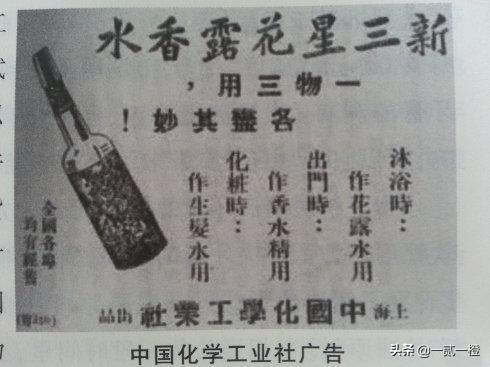 新三星花露香水
一物三用，
各盡其妙！
沐浴時：
作花露水用
出門時：
作香水精用
化粧時：
作生髮水用
全國各埠
均有經售
上海中國化學工業社出品
中国化学工业社广告
头条 @一贰一橙